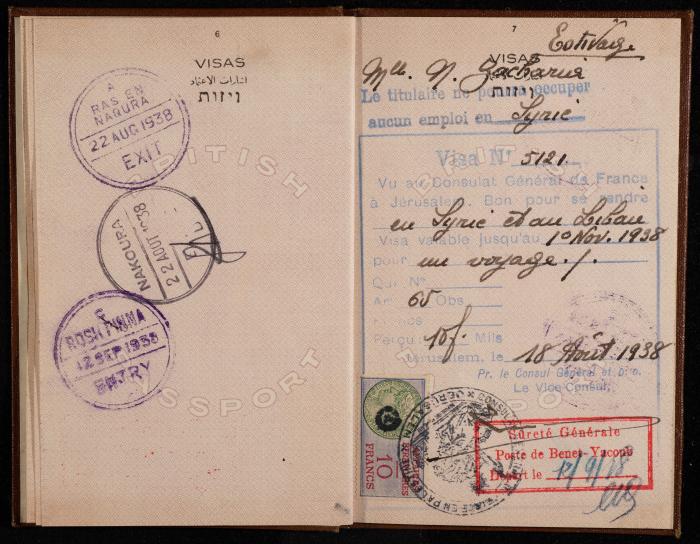 6
VISAS
اشارات الاعتماد
ויזות
A
RAS EN
NAQURA
22 AUG 1938
EXIT
NAKOURA
22 AOUT 1938
C
ROSH PINNA
12 SEP 1938
ENTRY
BRITISH
PASSPORT
7
Estivage
VISAS
ויזות
Mlle. N. Zacharia
Le titulaire ne pourra occuper
aucun emploi en Syrie
Visa No 5121.
Vu au Consulat Général de France
à Jérusalem. Bon pour se rendre
en Syrie et au Liban
Visa valable jusqu'au 1o Nov. 1938
pour un voyage./.
65 Obs
Perçu 10f. Mils
Jérusalem, le 18 Août 1938
Pr. le Consul Général et p. o.
Le Vice Consul,
10
FRANCS
JERUSALEM
Sûreté Générale
Poste de Benet-Yacoub
Départ le 12/9/38